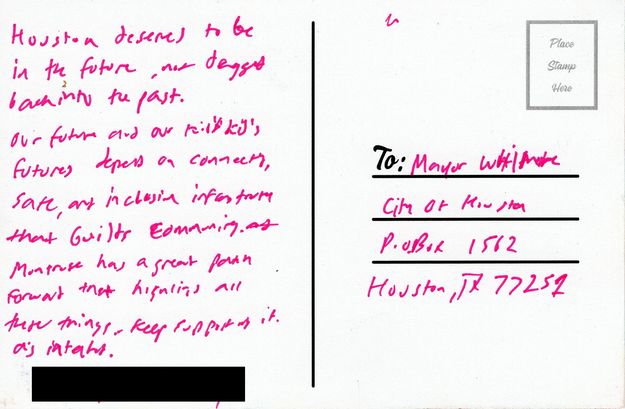 Houston deserves to be
in the future, not dragged
back into the past.
Our future and our kid's
futures depend on connected,
safe, and inclusive infrastructure
that builds community. 
Montrose has a great path
forward that highlights all
these things. Keep supporting it
as intended.
Place
Stamp
Here
To: Mayor Whitmire
City of Houston
P.O Box 1562
Houston, TX 77251